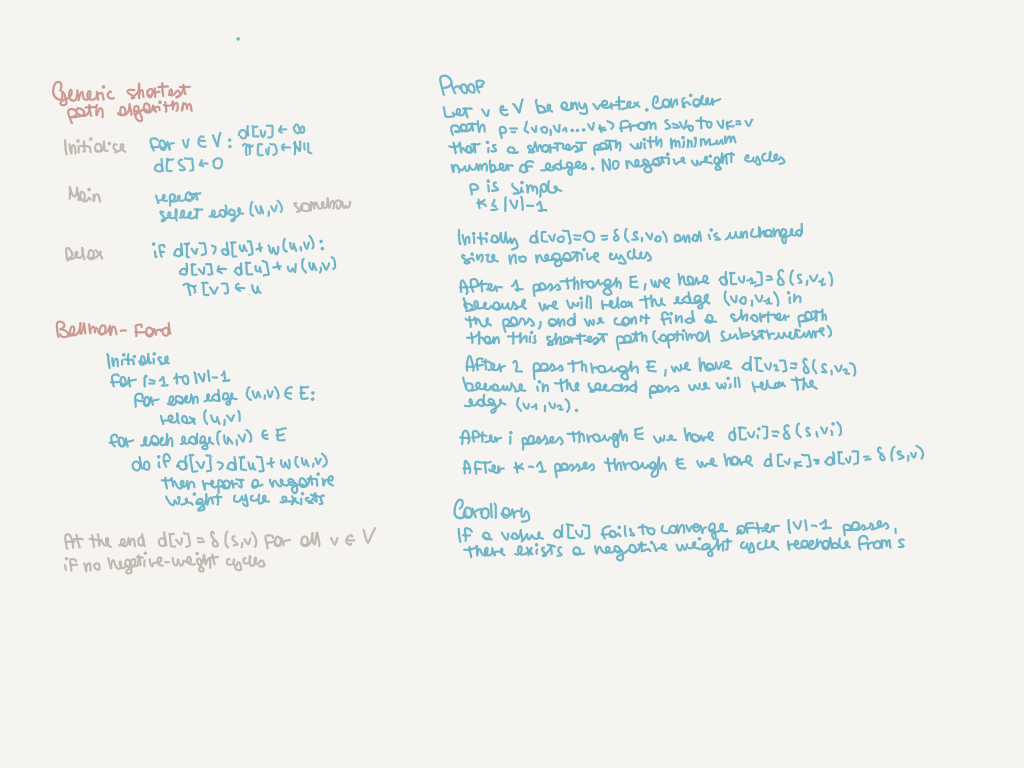 Generic shortest
path algorithm
Initialise for v ∈ V: d[v] ← ∞
π[v] ← NIL
d[S] ← 0
Main repeat
select edge (u,v) somehow
Relax if d[v] > d[u] + w(u,v):
d[v] ← d[u] + w(u,v)
π[v] ← u
Bellman-Ford
Initialise
for i=1 to |V|-1
for each edge (u,v) ∈ E:
relax (u,v)
for each edge (u,v) ∈ E
do if d[v] > d[u] + w(u,v)
then report a negative
weight cycle exists
At the end d[v] = δ(s,v) for all v ∈ V
if no negative-weight cycles
Proof
Let v ∈ V be any vertex. Consider
path p = <v0,v1...vk> from s=v0 to vk=v
that is a shortest path with minimum
number of edges. No negative weight cycles
p is simple
k ≤ |V|-1
Initially d[v0]=0 = δ(s,v0) and is unchanged
since no negative cycles
After 1 pass through E, we have d[v1]=δ(s,v1)
because we will relax the edge (v0,v1) in
the pass, and we can't find a shorter path
than this shortest path (optimal substructure)
After 2 pass through E, we have d[v2]=δ(s,v2)
because in the second pass we will relax the
edge (v1,v2).
After i passes through E we have d[vi]=δ(s,vi)
After k-1 passes through E we have d[vk]=d[v]=δ(s,v)
Corollary
If a value d[v] fails to converge after |V|-1 passes,
there exists a negative weight cycle reachable from s